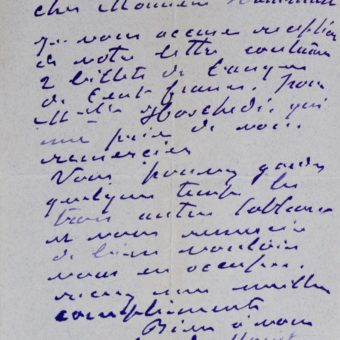 cher Monsieur
Je vous accuse reception
de votre lettre contenant
2 billets de banque
de Cent francs. pour
Hoschedé, qui
me prie de vous
remercier
Vous pouvez garder
quelque temps les
trois autres tableaux
et vous remercie
de bien vouloir
vous en occuper.
recevez mes meilleurs
compliments
Bien à vous